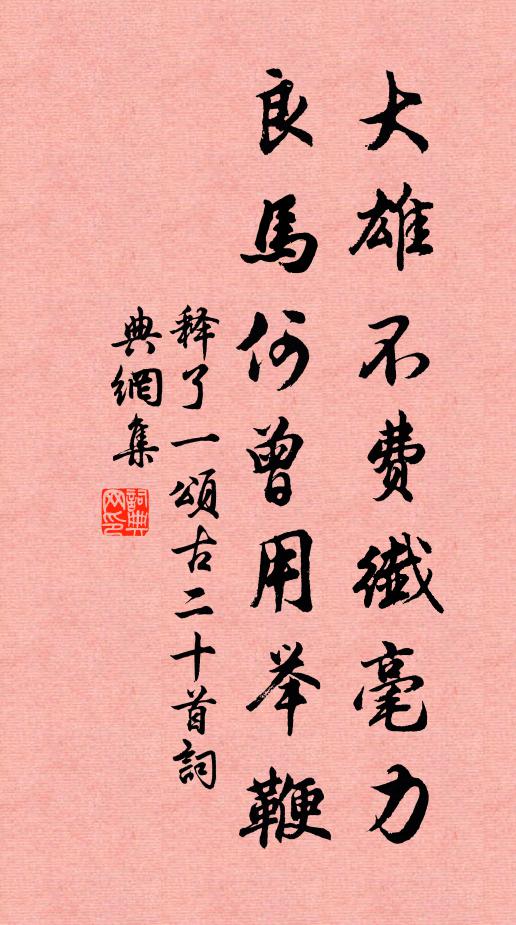 大雄不费纖毫力
良馬何曾用举鞭
释了一頌古二十首詞
典網集
詞典網印